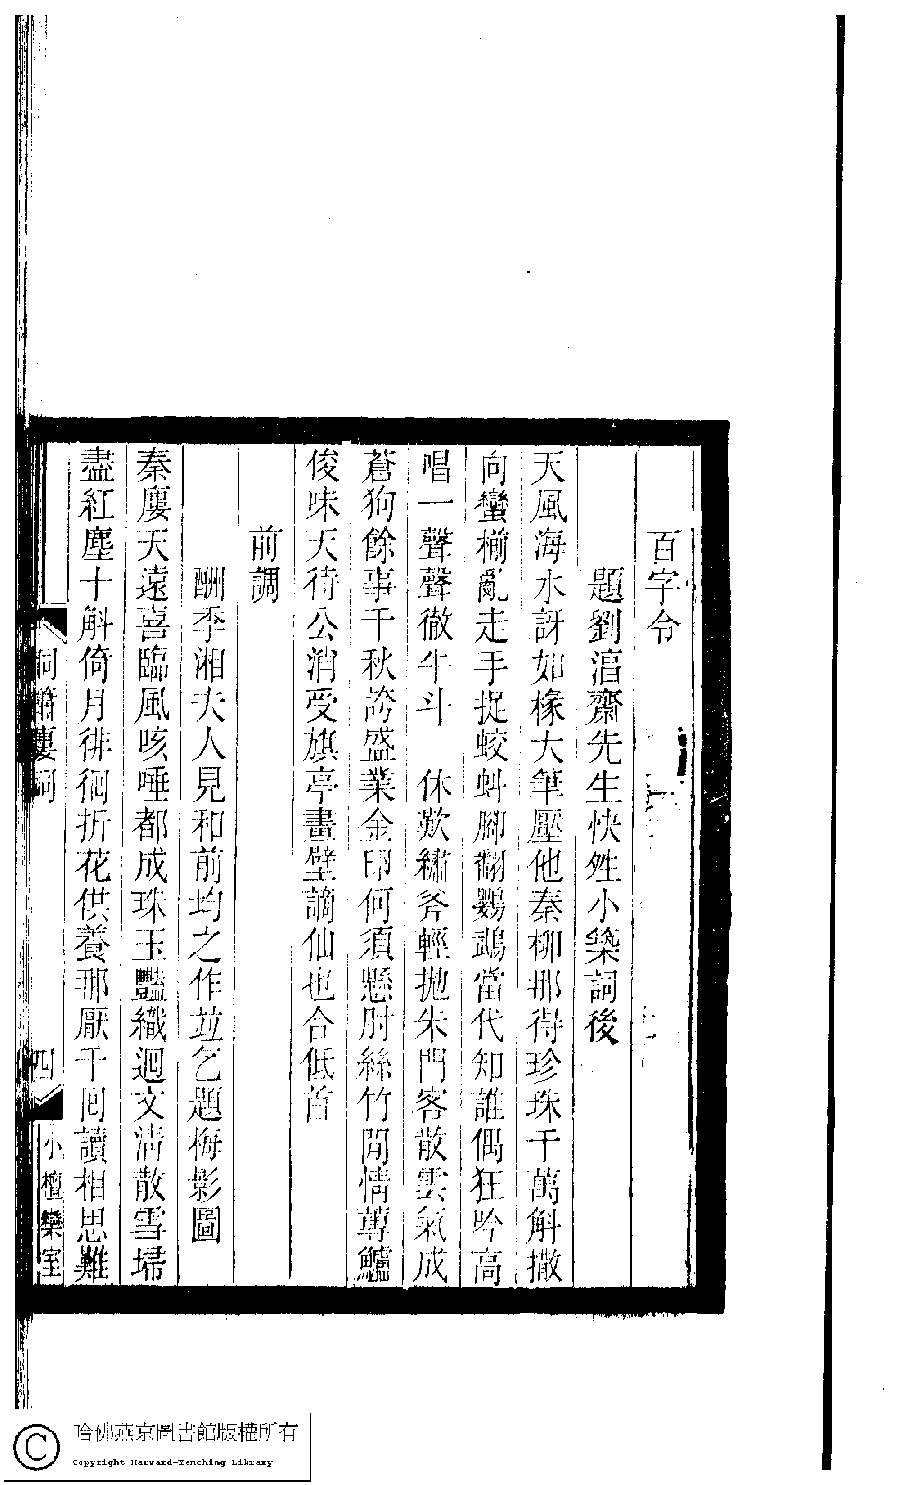 百字令
題劉湻齋先生快姓小築詞後
天風海水訝如椽大筆壓他秦柳那得珍珠千萬斛撒
向蠻櫋亂走手捉蛟蚪腳翻鸚鵡當代知誰偶狂吟高
唱一聲聲徹牛斗　休歎繡斧輕拋朱門客散雲氣成
蒼狗餘事千秋誇盛業金印何須懸肘絲竹閒情蓴鱸
俊味天待公消受旗亭畫壁謫仙也合低首
前調
酬季湘夫人見和前均之作竝乞題梅影圖
秦廔天遠喜臨風咳唾都成珠玉豔織迴文清散雪埽
盡紅塵十斛倚月徘徊折花供養那厭千回讀相思難
洞簫廔詞
四
小檀欒室
哈佛燕京圖書館版權所有
Copyright Harvard-Yenching Library